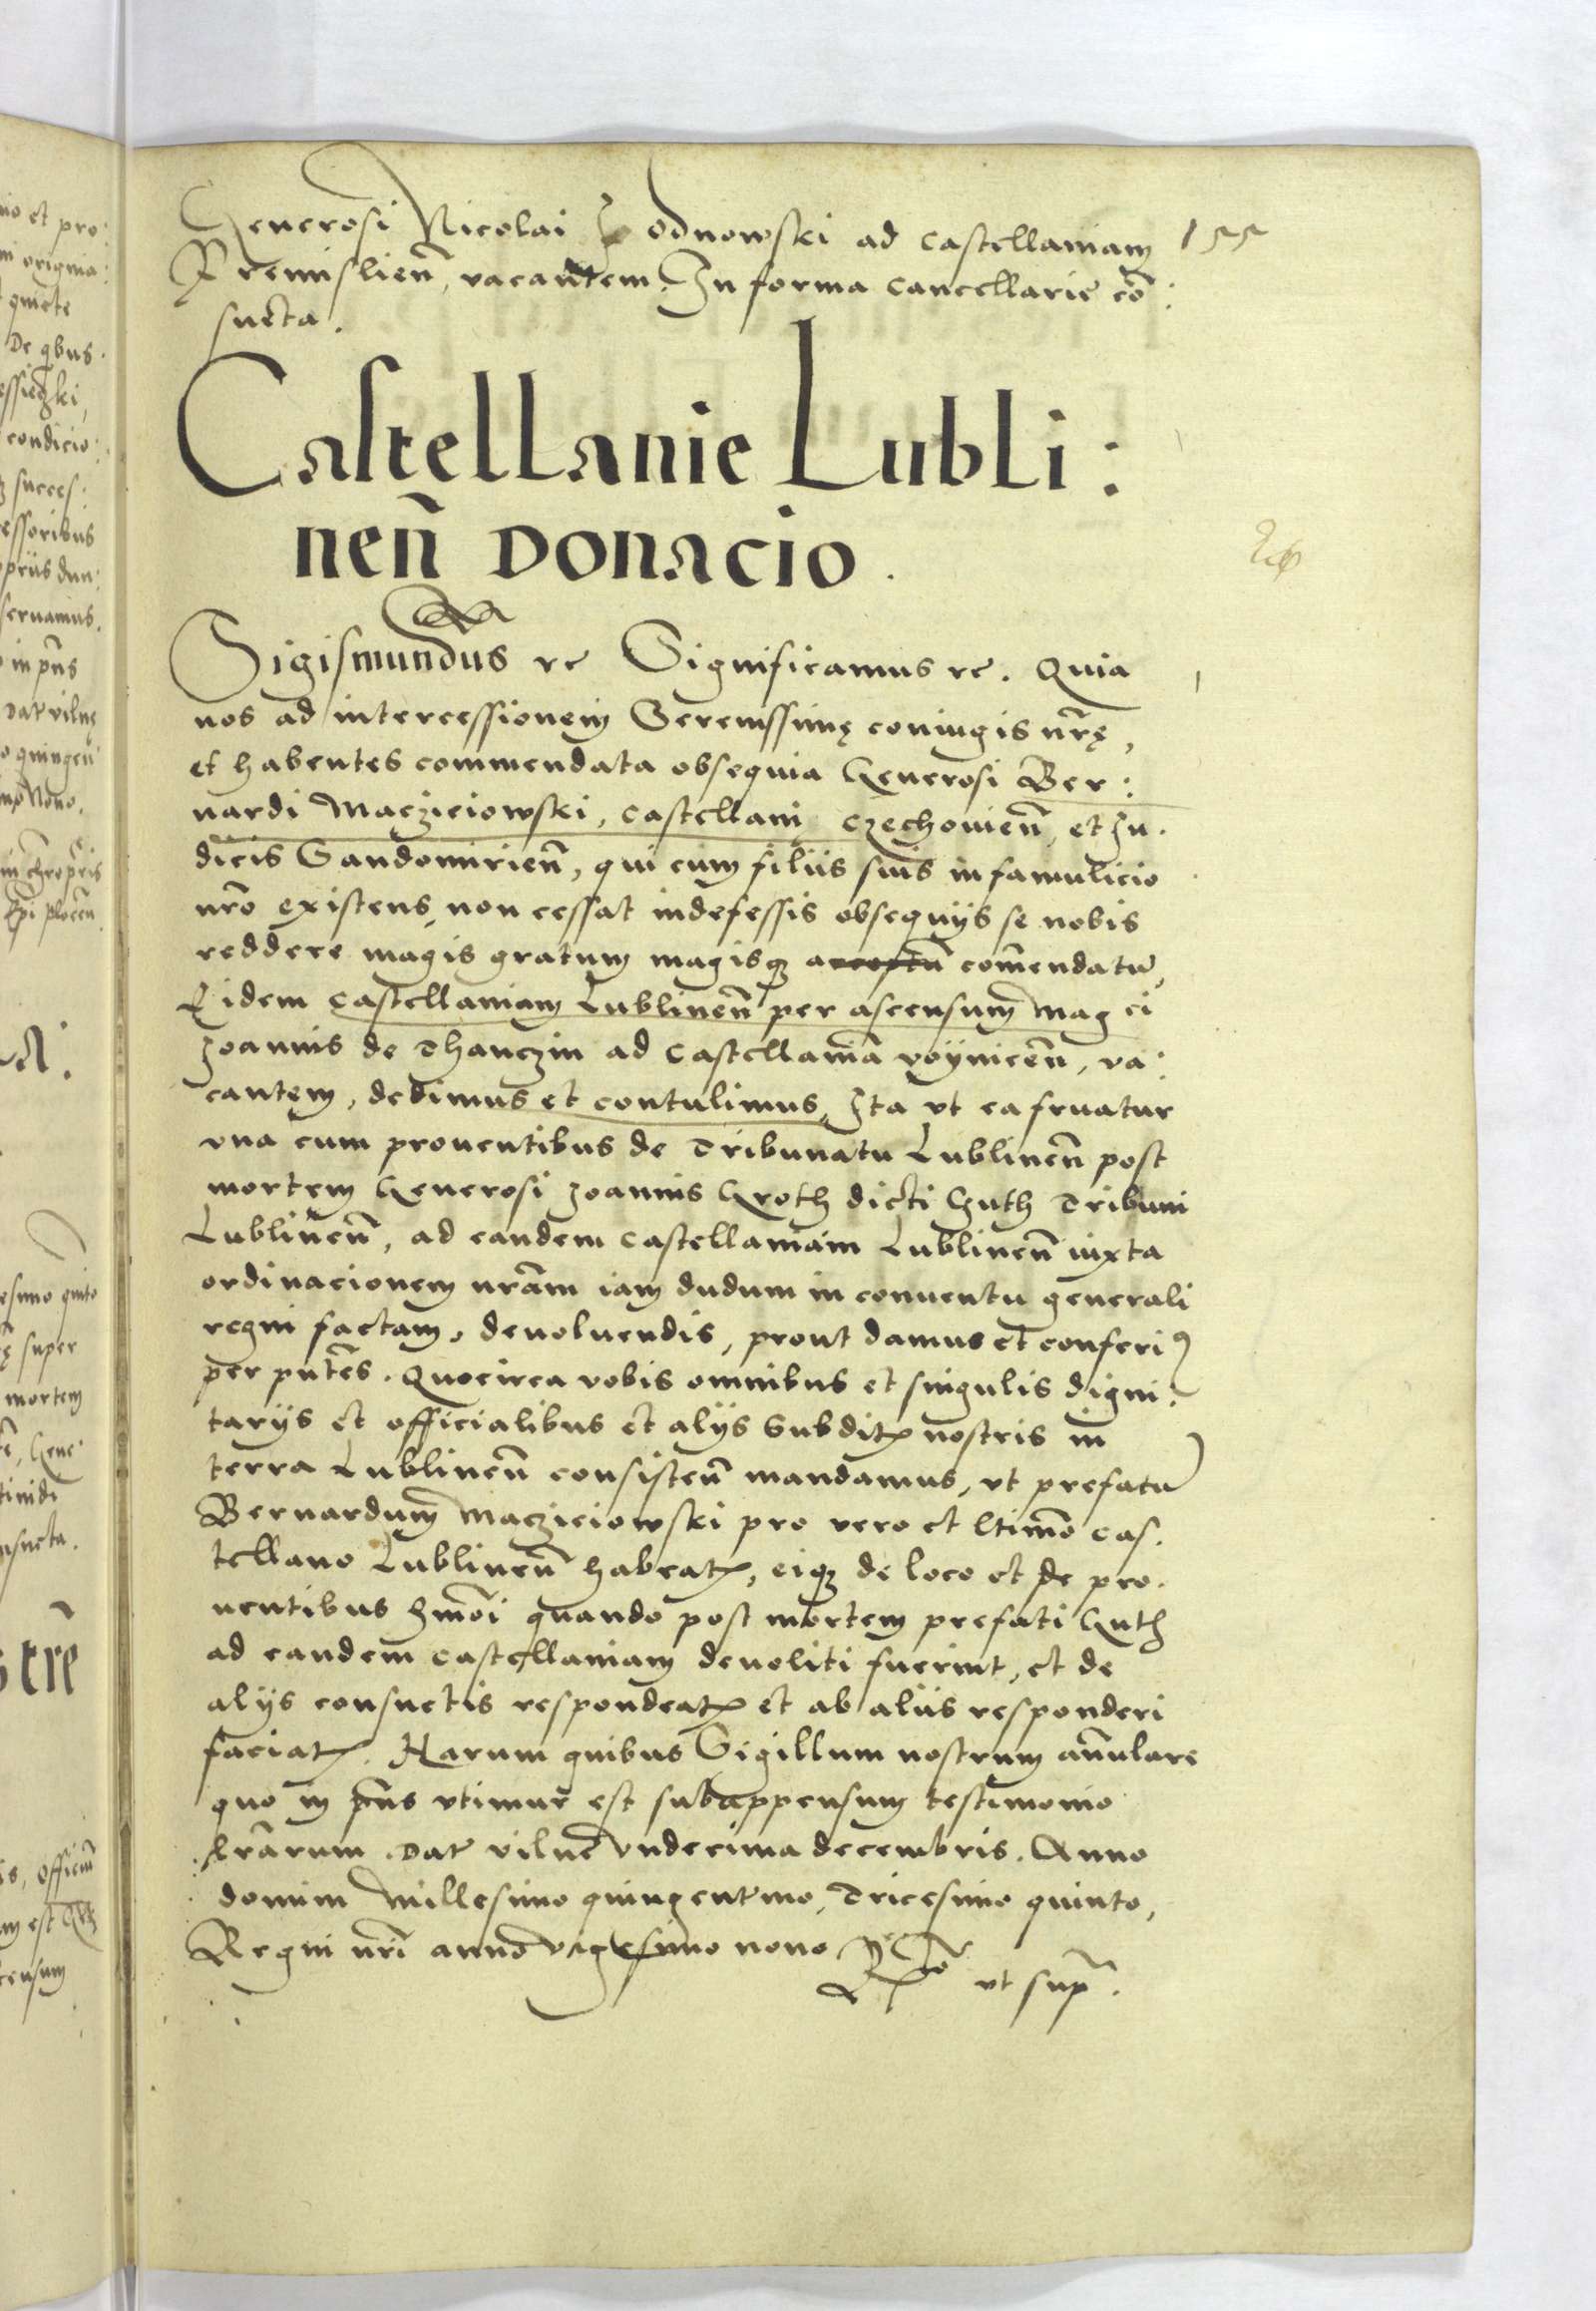 Generosi Nicolai Wodnowski ad castellaniam 155
Premislien̄, vacantem. In forma cancellarie cō:
sueta.
Castellanie Lubli:
nen̄ Donacio.
Sigismundus rc Significamus rc. Quia
nos ad intercessionem Serenissimę coniugis nr̄ę,
et habentes commendata obsequia Generosi Ber:
nardi Macziciowski, castellani czechouien̄, et Iu.
dicis Sandomirien̄, qui cum filiis suis in famulicio
nr̄o existens, non cessat indefessis obsequijs se nobis
reddere magis gratum magisqꝫ comendatū,
Eidem castellaniam Lublinen̄ per ascensum Mag ci
Ioannis de Thanczin ad castellaniā voynicen̄, va:
cantem, dedimus et contulimus, Ita vt ea fruatur
vna cum prouentibus de Tribunatu Lublinen̄ post
mortem Generosi Ioannis Groth dicti Guth Tribuni
Lublinen̄, ad eandem castellaniam Lublinen̄ iuxta
ordinacionem nr̄am iam dudum in conuentu generali
regni factam, deuoluendis, prout damus et conferiꝰ
per pn̄tes. Quocirca vobis omnibus et singulis digni:
tarijs et officialibus et alijs Subditꝭ nostris in
terra Lublinen̄ consisten̄ mandamus, vt prefatū
Bernardum Macziciowski pro vero et ltimo cas.
tellano Lublinen̄ habeatꝭ, eiqꝫ de loco et de pro.
uentibus hmōi quando post mortem prefati Guth
ad eandem castellaniam deuoluti fuerint, et de
alijs consuetis respondeatꝭ et ab aliis responderi
faciatꝭ. Harum quibus Sigillum nostrum an̄ulare
quo in pn̄s vtimur est subappensum testimonio
lr̄arum. Dat vilnę vndecima decembris. Anno
domini Millesimo quingentesimo, Tricesimo quinto,
Regni nr̄i anno vigesimo nono
Rlō vt sup̄.